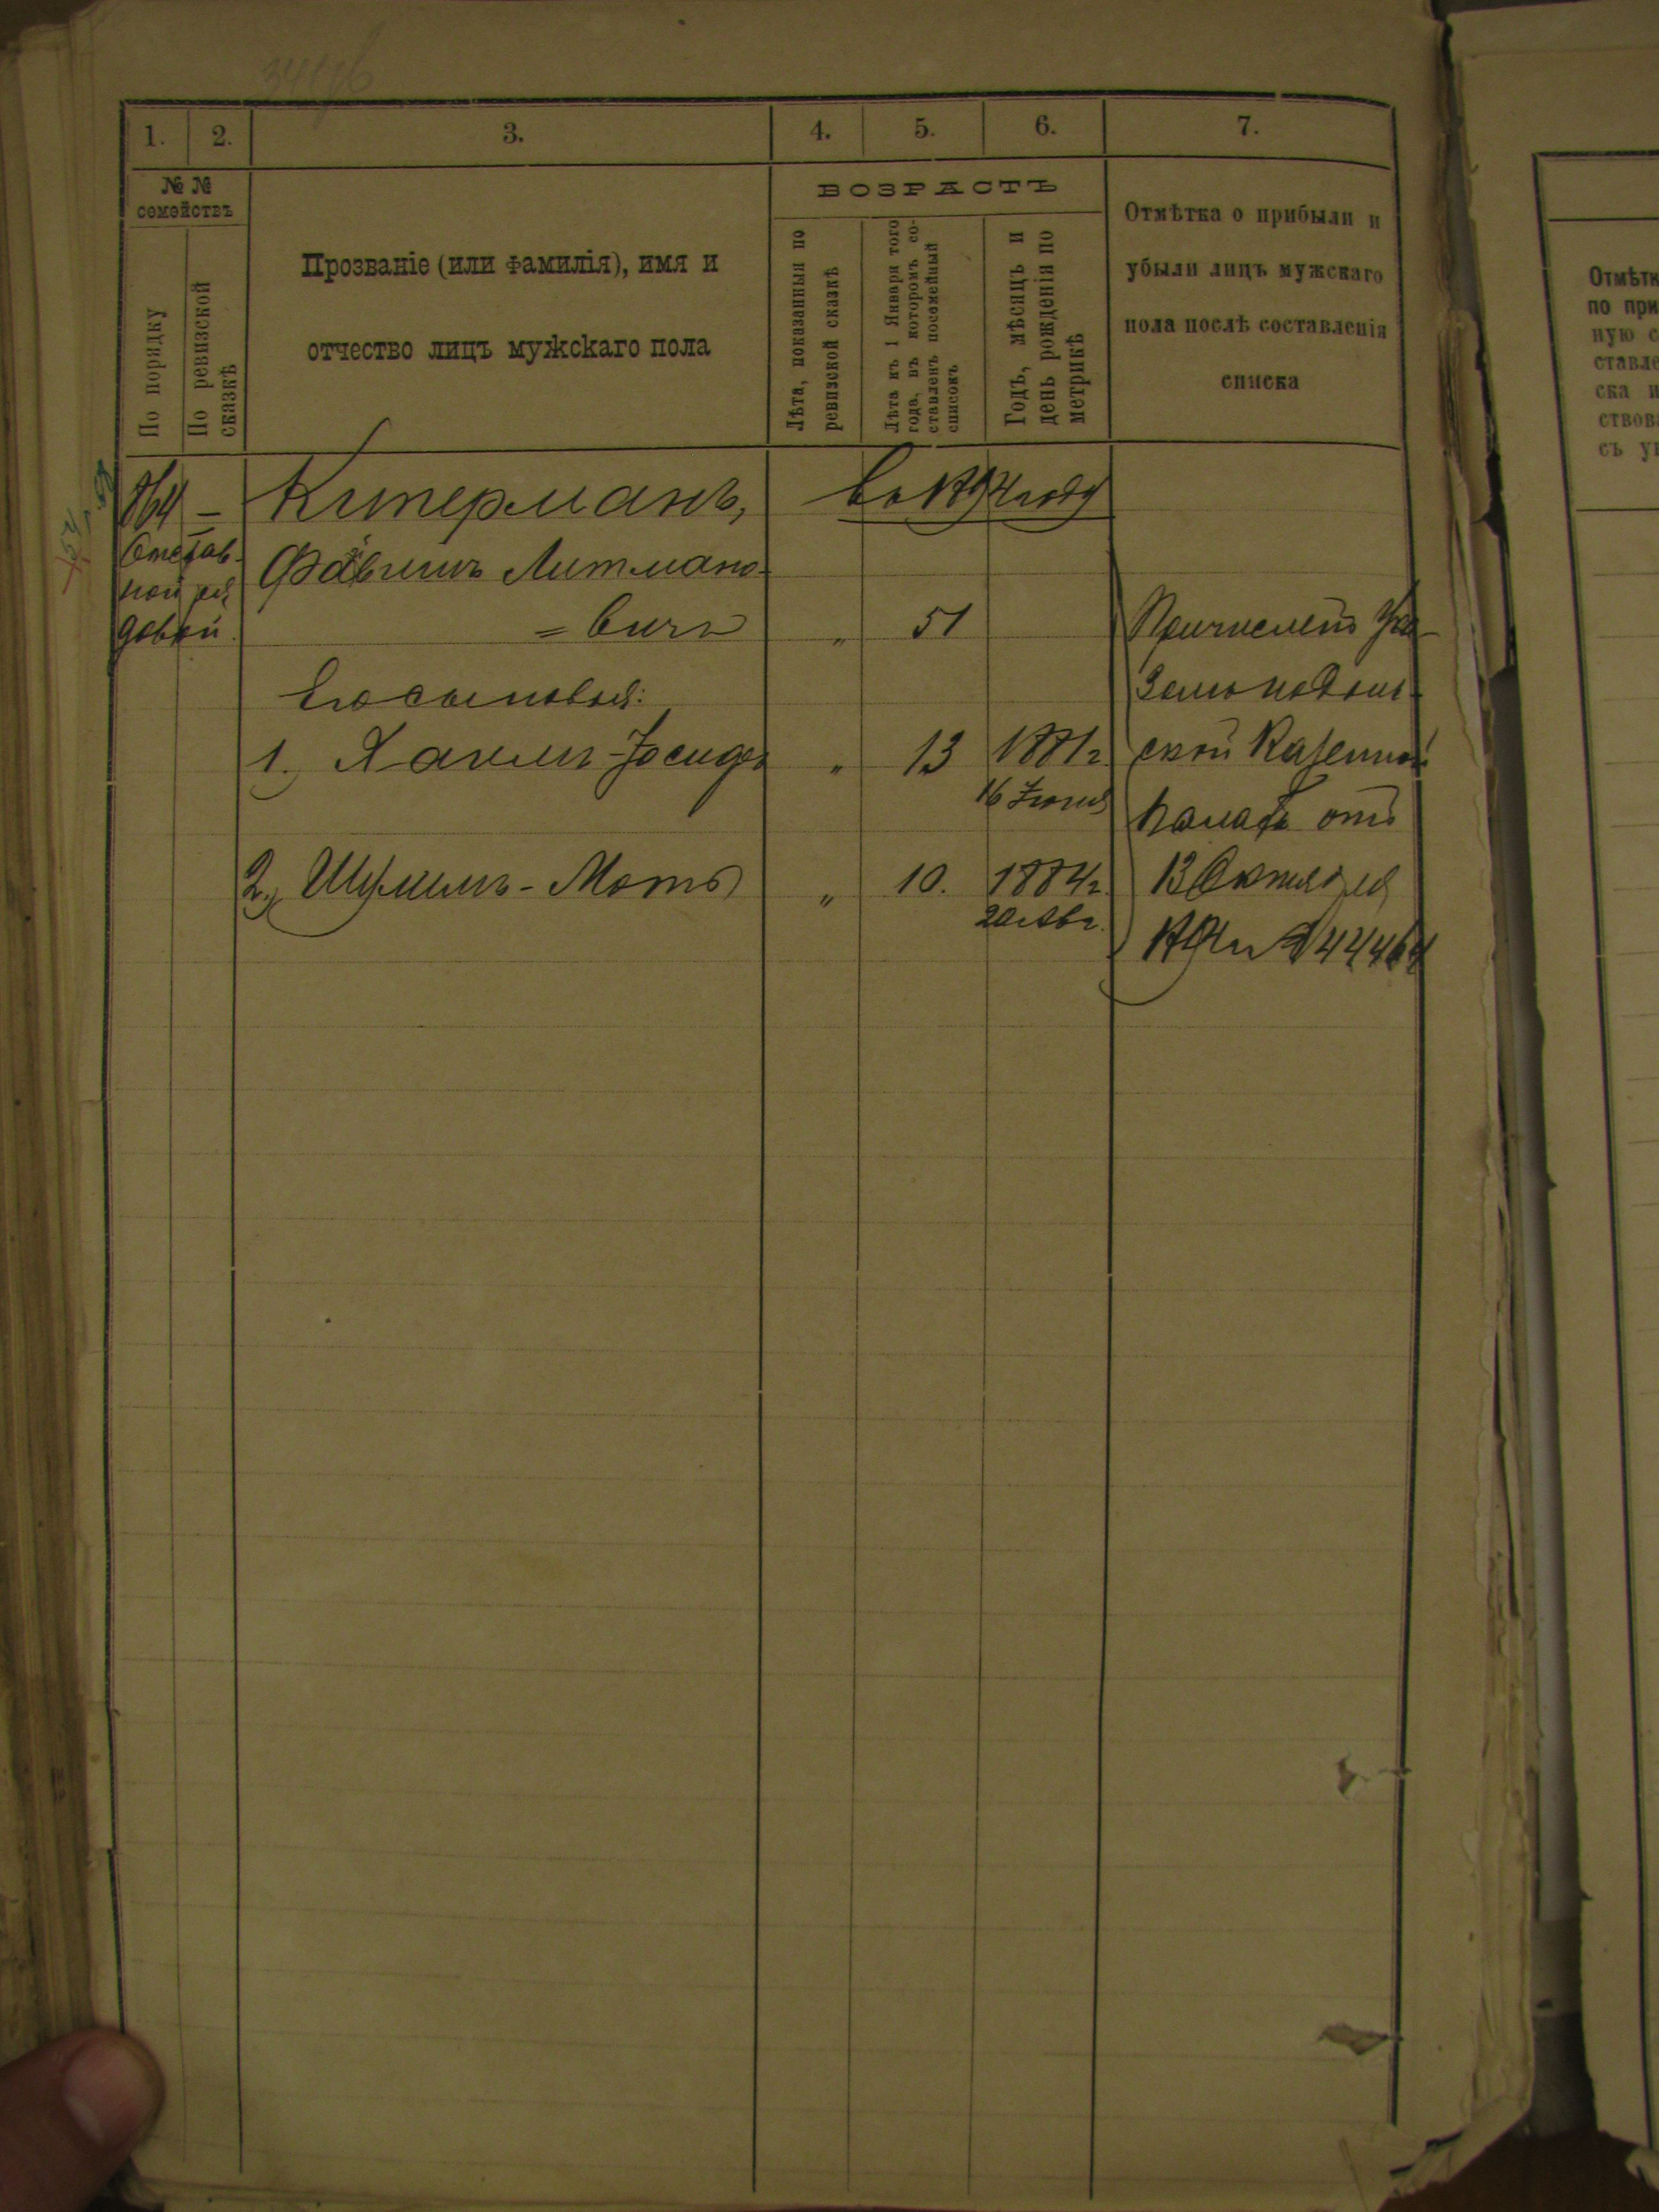 1. 2. 3. 4. 5. 6. 7.
№ №
семействъ
По порядку
По ревизской
сказкѣ
Прозваніе (или фамилія), имя и
отчество лицъ мужскаго пола
ВОЗРАСТЪ
Лѣта, показанныя по
ревизской сказкѣ
Лѣта къ 1 Января того
года, въ которомъ со-
ставленъ посемейный
списокъ
Годъ, мѣсяцъ и
день рожденія по
метрикѣ
Отмѣтка о прибыли и
убыли лицъ мужскаго
пола послѣ составленія
списка
864 –
Отстав-
ной ря
довой.
Китерманъ,
Литмано-
= вичъ
„ 51
Его сыновья:
1. Хаимъ-Іосифъ „ 13 1881 г.
16 Іюня
2. Шулимъ-Мотъ „ 10. 1884 г.
20 Авг.
въ 1894 году
Причисленъ Ука-
зомъ
ской Казенной
Палаты отъ
13 Октября
1894 г. № 44464
Отмѣтк
по при
ную с
ставле
ска и
ствова
съ ук